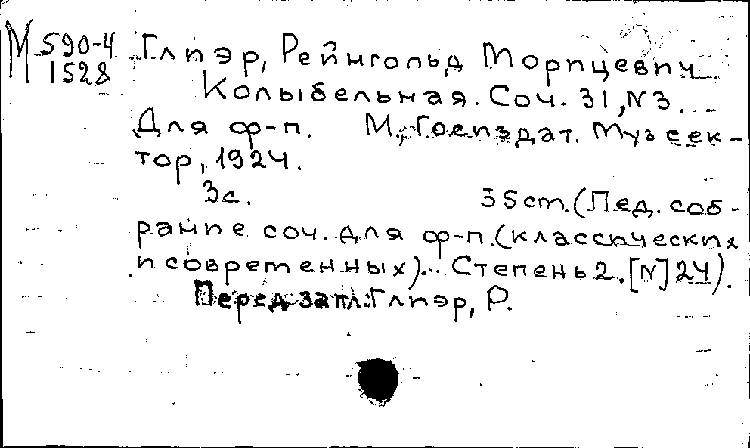 М 590-4
1528
Глиэр, Рейнгольд Морицевич
Колыбельная. Соч. 31, N3.
Для ф-п. М., Госиздат. Музсек-
тор, 1924.
3с. 35cm. (Пед. соб-
рание соч. для ф-п. (классических
и современных). Степень 2. [N] 24).
Перед загл.: Глиэр, Р.